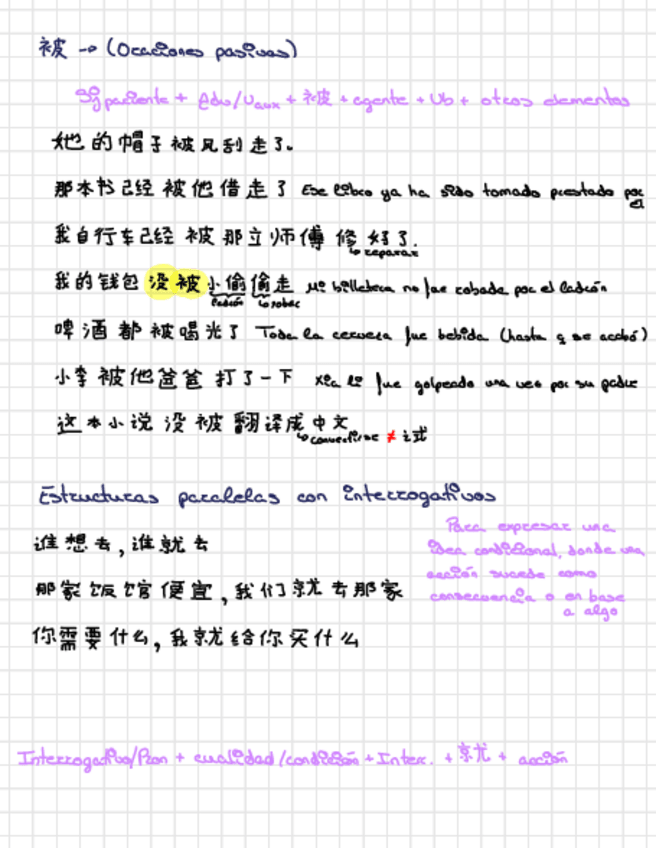 被 → (Ocaciones pasivas)
Sj paciente + Adv/Vaux + 被 + agente + Vb + otros elementos
她的帽子被风刮走了.
那本书已经被他借走了 Ese libro ya ha sido tomado prestado por él
我自行车已经被那立师傅修好了.
↳ reparar
我的钱包没被小偷偷走 Mi billetera no fue robada por el ladrón
ladrón ↳ robar
啤酒都被喝光了 Toda la cerveza fue bebida (hasta q se acabó)
小李被他爸爸打了一下 Xiao li fue golpeado una vez por su padre
这本小说没被翻译成中文
↳ convertirse ≠ 试
Estructuras paralelas con interrogativos
谁想去,谁就去
那家饭馆便宜,我们就去那家
你需要什么,我就给你买什么
Para expresar una
idea condicional, donde una
acción sucede como
consecuencia o en base
a algo
Interrogativo/Pron + cualidad/condición + Inter. + 就 + acción